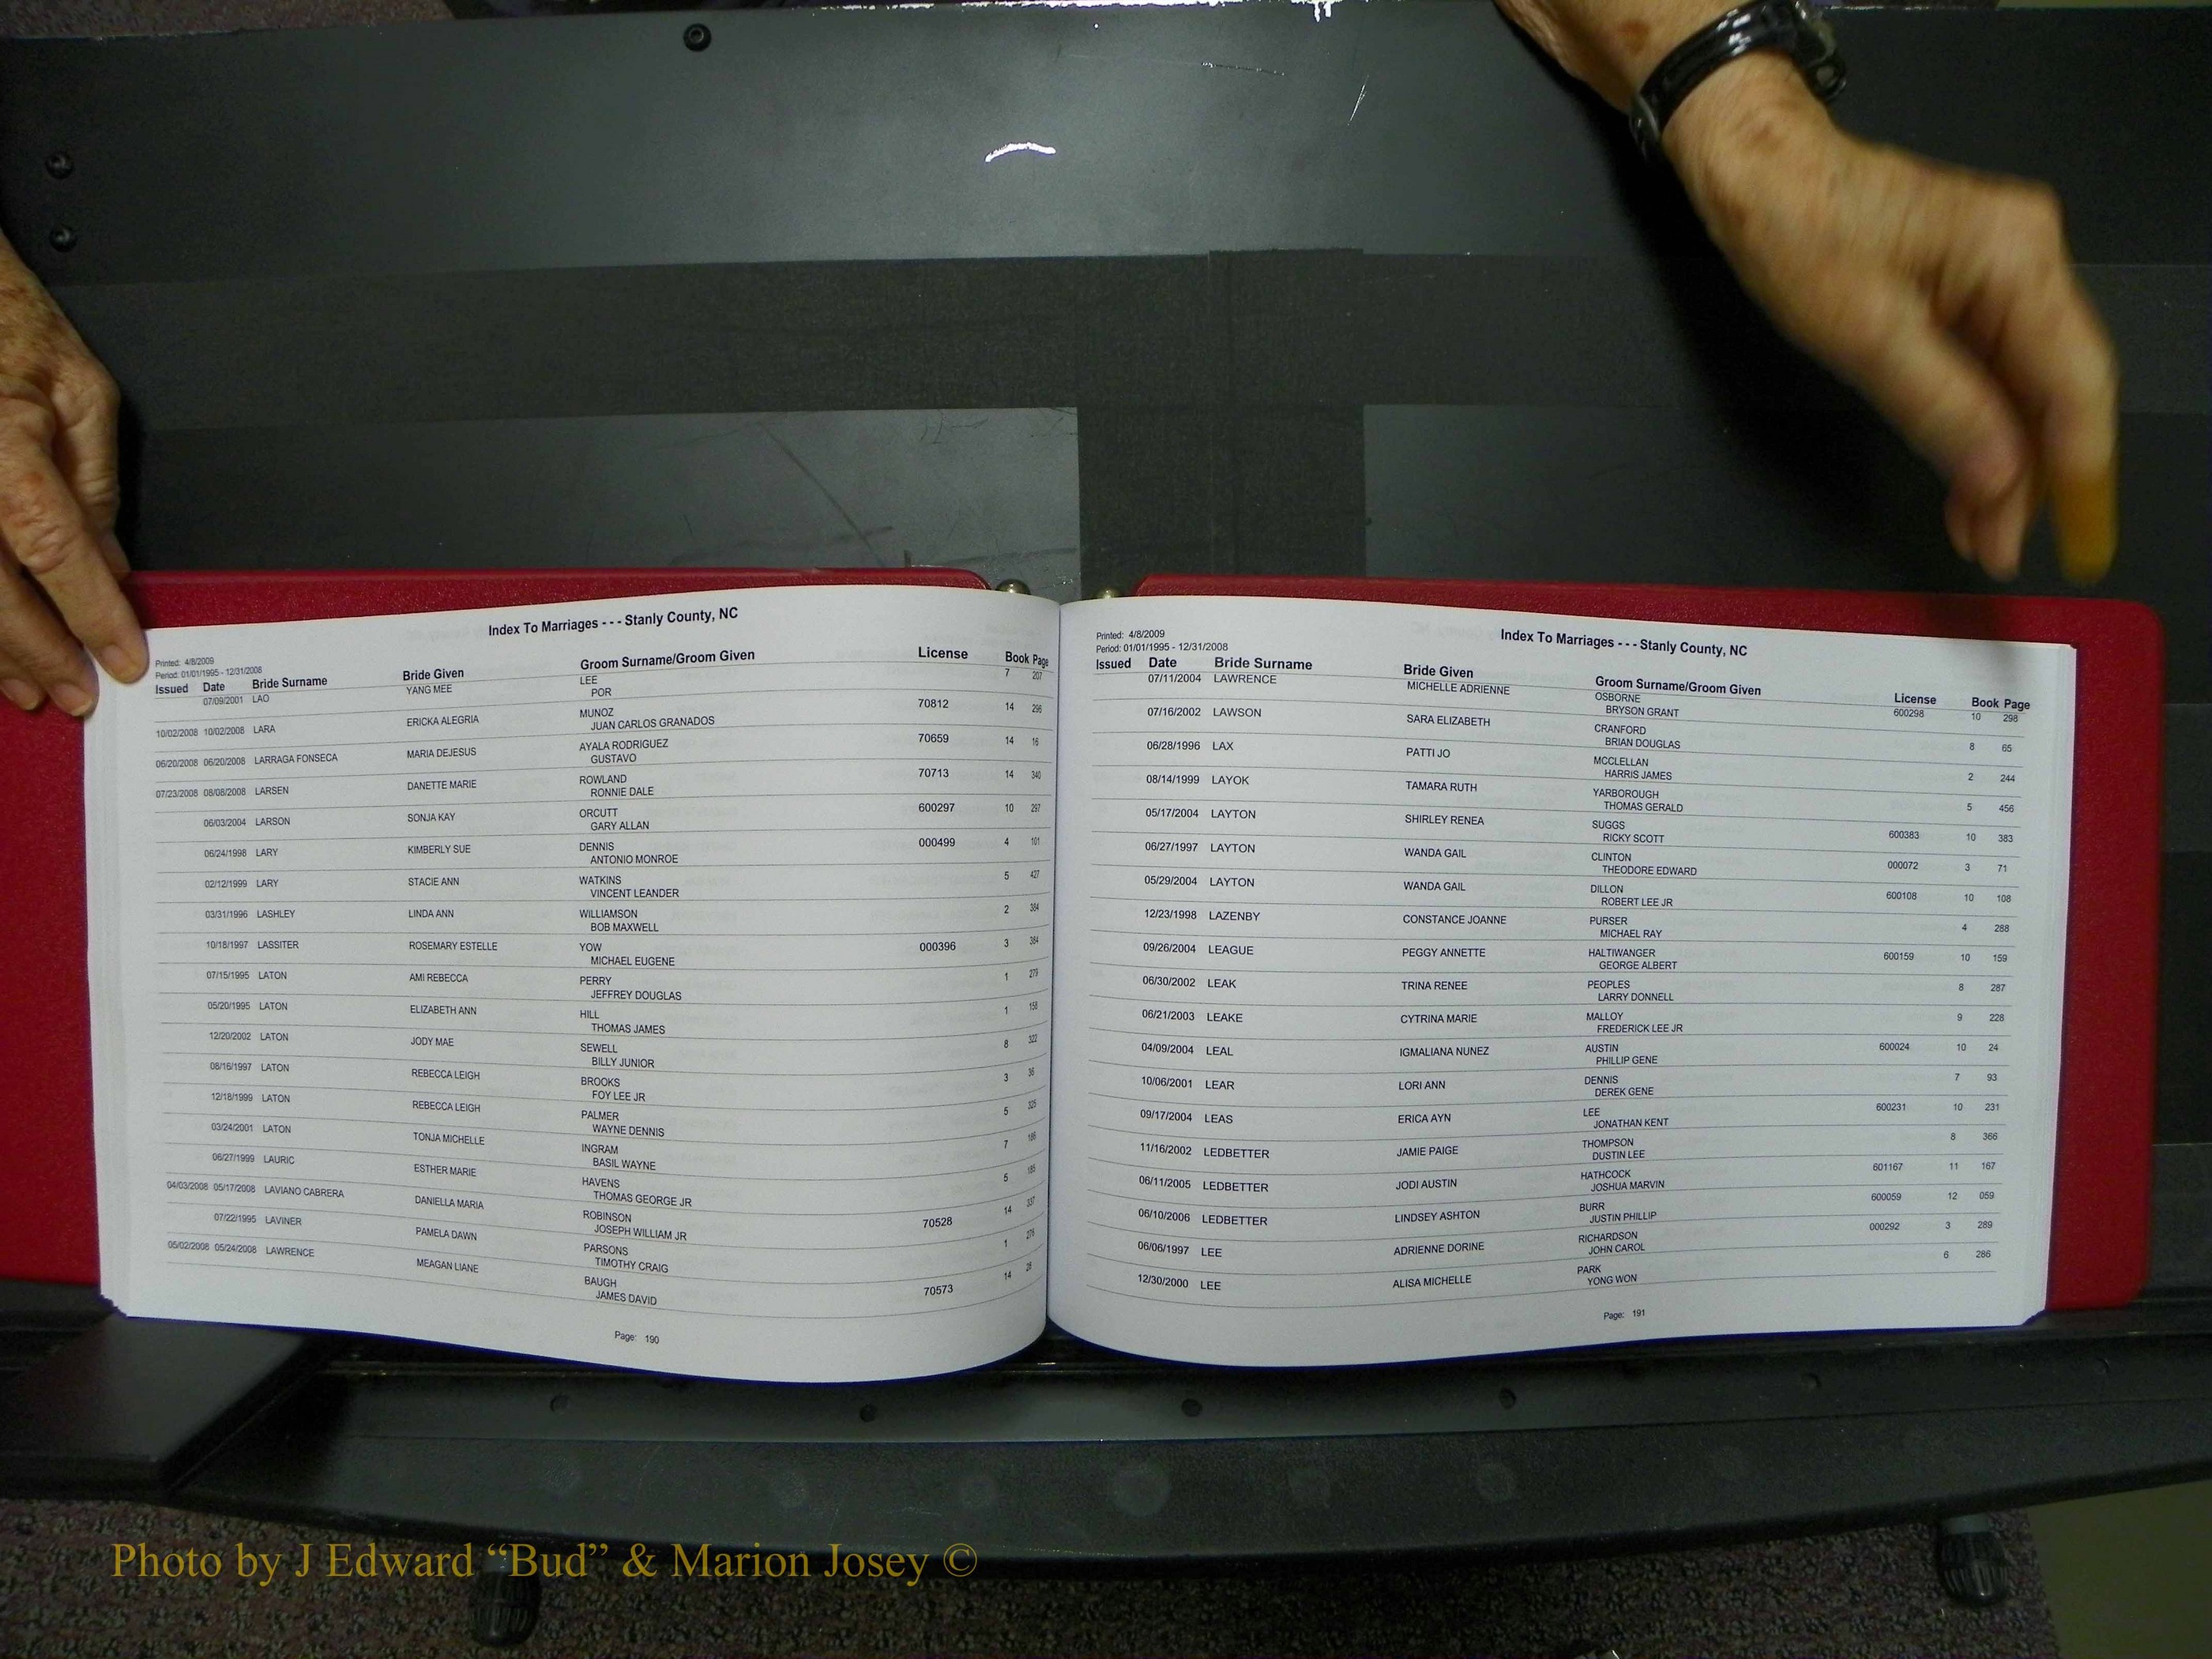 Index To Marriages - - - Stanly County, NC
Printed: 4/8/2009
Period: 01/01/1995 - 12/31/2008
Issued Date Bride Surname Bride Given Groom Surname/Groom Given License Book Page
07/09/2001 LAO YANG MEE LEE 7 207
POR
10/02/2008 10/02/2008 LARA ERICKA ALEGRIA MUNOZ 70812 14 296
JUAN CARLOS GRANADOS
06/20/2008 06/20/2008 LARRAGA FONSECA MARIA DEJESUS AYALA RODRIGUEZ 70659 14 16
GUSTAVO
07/23/2008 08/08/2008 LARSEN DANETTE MARIE ROWLAND 70713 14 340
RONNIE DALE
06/03/2004 LARSON SONJA KAY ORCUTT 600297 10 297
GARY ALLAN
06/24/1998 LARY KIMBERLY SUE DENNIS 000499 4 101
ANTONIO MONROE
02/12/1999 LARY STACIE ANN WATKINS 5 427
VINCENT LEANDER
03/31/1996 LASHLEY LINDA ANN WILLIAMSON 2 384
BOB MAXWELL
10/18/1997 LASSITER ROSEMARY ESTELLE YOW 000396 3 384
MICHAEL EUGENE
07/15/1995 LATON AMI REBECCA PERRY 1 279
JEFFREY DOUGLAS
05/20/1995 LATON ELIZABETH ANN HILL 1 158
THOMAS JAMES
12/20/2002 LATON JODY MAE SEWELL 8 322
BILLY JUNIOR
08/16/1997 LATON REBECCA LEIGH BROOKS 3 36
FOY LEE JR
12/18/1999 LATON REBECCA LEIGH PALMER 5 325
WAYNE DENNIS
03/24/2001 LATON TONJA MICHELLE INGRAM 7
BASIL WAYNE
06/27/1999 LAURIC ESTHER MARIE HAVENS 5 185
THOMAS GEORGE JR
04/03/2008 05/17/2008 LAVIANO CABRERA DANIELLA MARIA ROBINSON 70528 14 337
JOSEPH WILLIAM JR
07/22/1995 LAVINER PAMELA DAWN PARSONS 1
TIMOTHY CRAIG
05/02/2008 05/24/2008 LAWRENCE MEAGAN LIANE BAUGH 70573 14 28
JAMES DAVID
Page: 190
Index To Marriages - - - Stanly County, NC
Printed: 4/8/2009
Period: 01/01/1995 - 12/31/2008
Issued Date Bride Surname Bride Given Groom Surname/Groom Given License Book Page
07/11/2004 LAWRENCE MICHELLE ADRIENNE OSBORNE 600298 10 298
BRYSON GRANT
07/16/2002 LAWSON SARA ELIZABETH CRANFORD 8 65
BRIAN DOUGLAS
06/28/1996 LAX PATTI JO MCCLELLAN 2 244
HARRIS JAMES
08/14/1999 LAYOK TAMARA RUTH YARBOROUGH 5 456
THOMAS GERALD
05/17/2004 LAYTON SHIRLEY RENEA SUGGS 600383 10 383
RICKY SCOTT
06/27/1997 LAYTON WANDA GAIL CLINTON 000072 3 71
THEODORE EDWARD
05/29/2004 LAYTON WANDA GAIL DILLON 600108 10 108
ROBERT LEE JR
12/23/1998 LAZENBY CONSTANCE JOANNE PURSER 4 288
MICHAEL RAY
09/26/2004 LEAGUE PEGGY ANNETTE HALTIWANGER 600159 10 159
GEORGE ALBERT
06/30/2002 LEAK TRINA RENEE PEOPLES 8 287
LARRY DONNELL
06/21/2003 LEAKE CYTRINA MARIE MALLOY 9 228
FREDERICK LEE JR
04/09/2004 LEAL IGMALIANA NUNEZ AUSTIN 600024 10 24
PHILLIP GENE
10/06/2001 LEAR LORI ANN DENNIS 7 93
DEREK GENE
09/17/2004 LEAS ERICA AYN LEE 600231 10 231
JONATHAN KENT
11/16/2002 LEDBETTER JAMIE PAIGE THOMPSON 8 366
DUSTIN LEE
06/11/2005 LEDBETTER JODI AUSTIN HATHCOCK 601167 11 167
JOSHUA MARVIN
06/10/2006 LEDBETTER LINDSEY ASHTON BURR 600059 12 059
JUSTIN PHILLIP
06/06/1997 LEE ADRIENNE DORINE RICHARDSON 000292 3 289
JOHN CAROL
12/30/2000 LEE ALISA MICHELLE PARK 6 286
YONG WON
Page: 191
Photo by J Edward “Bud” & Marion Josey ©